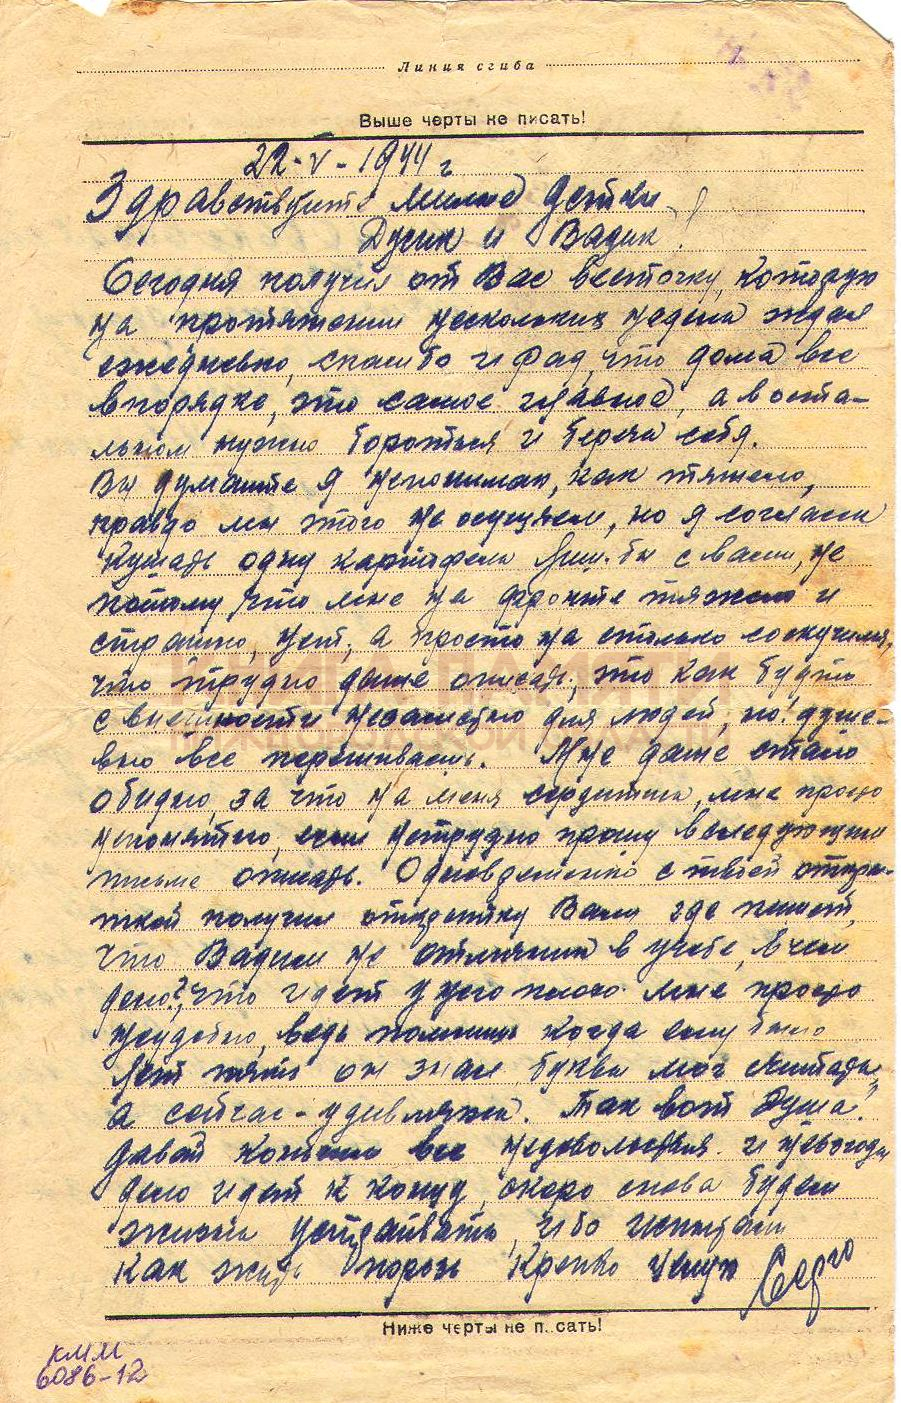 Линия сгиба
Выше черты не писать!
22-V-1944 г
Здравствуйте милые детки
Дусик и Вадик!
Сегодня получил от Вас весточку, которую
на протяжении нескольких недель ждал
ежедневно, спасибо и рад, что дома все
в порядке, это самое главное, а в оста-
льном нужно бороться и беречь себя.
Вы думаете я непонимаю, как тяжело,
правда мы этого не ощущаем, но я согласен
кушать одну картофель лиш-бы с вами, не
потому что мне на фронте тяжело и
страшно, нет, а просто на столько соскучился,
что трудно даже описать, это как будто
с внешности незаметно для людей, но! душе-
вно все переживаешь. Мне даже стало
обидно, за что на меня сердишься, мне просто
непонятно, если нетрудно прошу в следующем
письме описать. Одновременно с твоей откры-
ткой получил открытку Вали где пишет,
что Вадим не отличник в учебе, в чем
дело?, что идет у него плохо. мне просто
неудобно, ведь помнишь когда ему было
лет пять он знал буквы мог читать,
а сейчас - удивляюсь. Так вот Дуся!
давай кончим все недовольствия и невзгоды
дело идет к концу, скоро снова будем
жизнь устраивать, ибо
как жить порозь Крепко целую Серго
Ниже черты не писать!
КММ
6086-12
КНИГА ПАМЯТИ
НИЖЕГОРОДСКОЙ ОБЛАСТИ